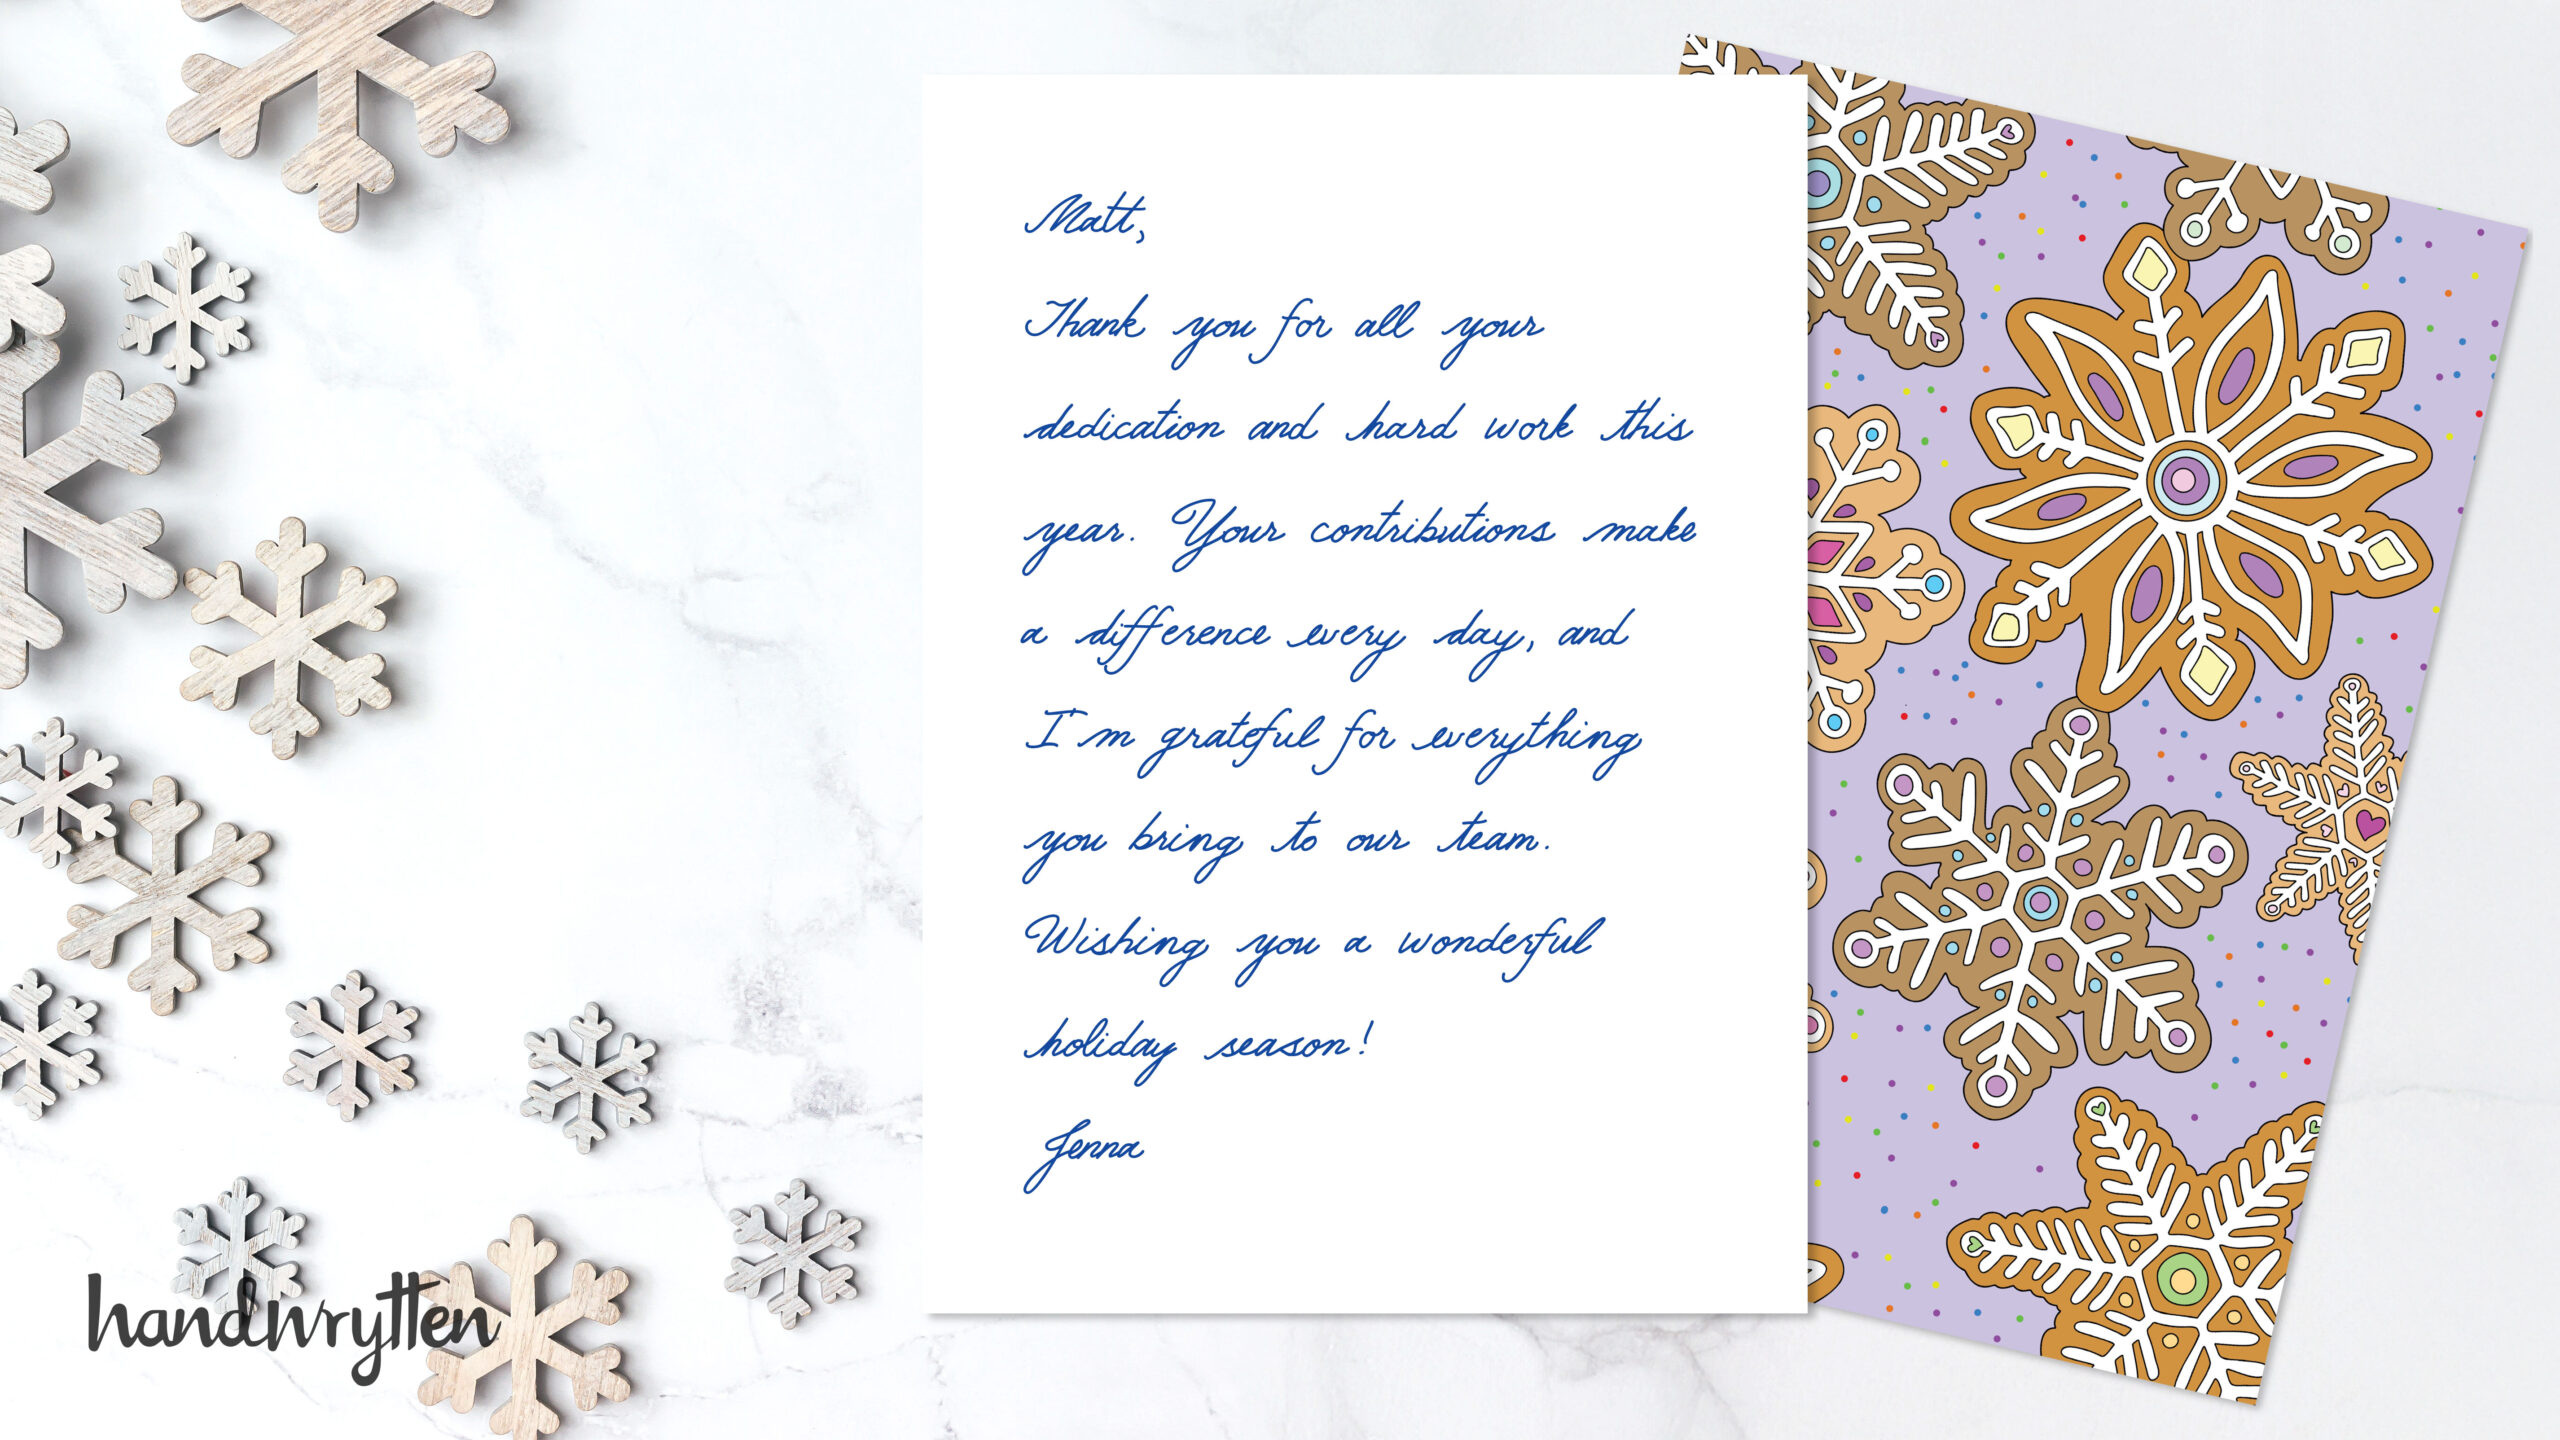 Matt,
Thank you for all your
dedication and hard work this
year. Your contributions make
a difference every day, and
I'm grateful for everything
you bring to our team.
Wishing you a wonderful
holiday season!
Jenna
handwrytten